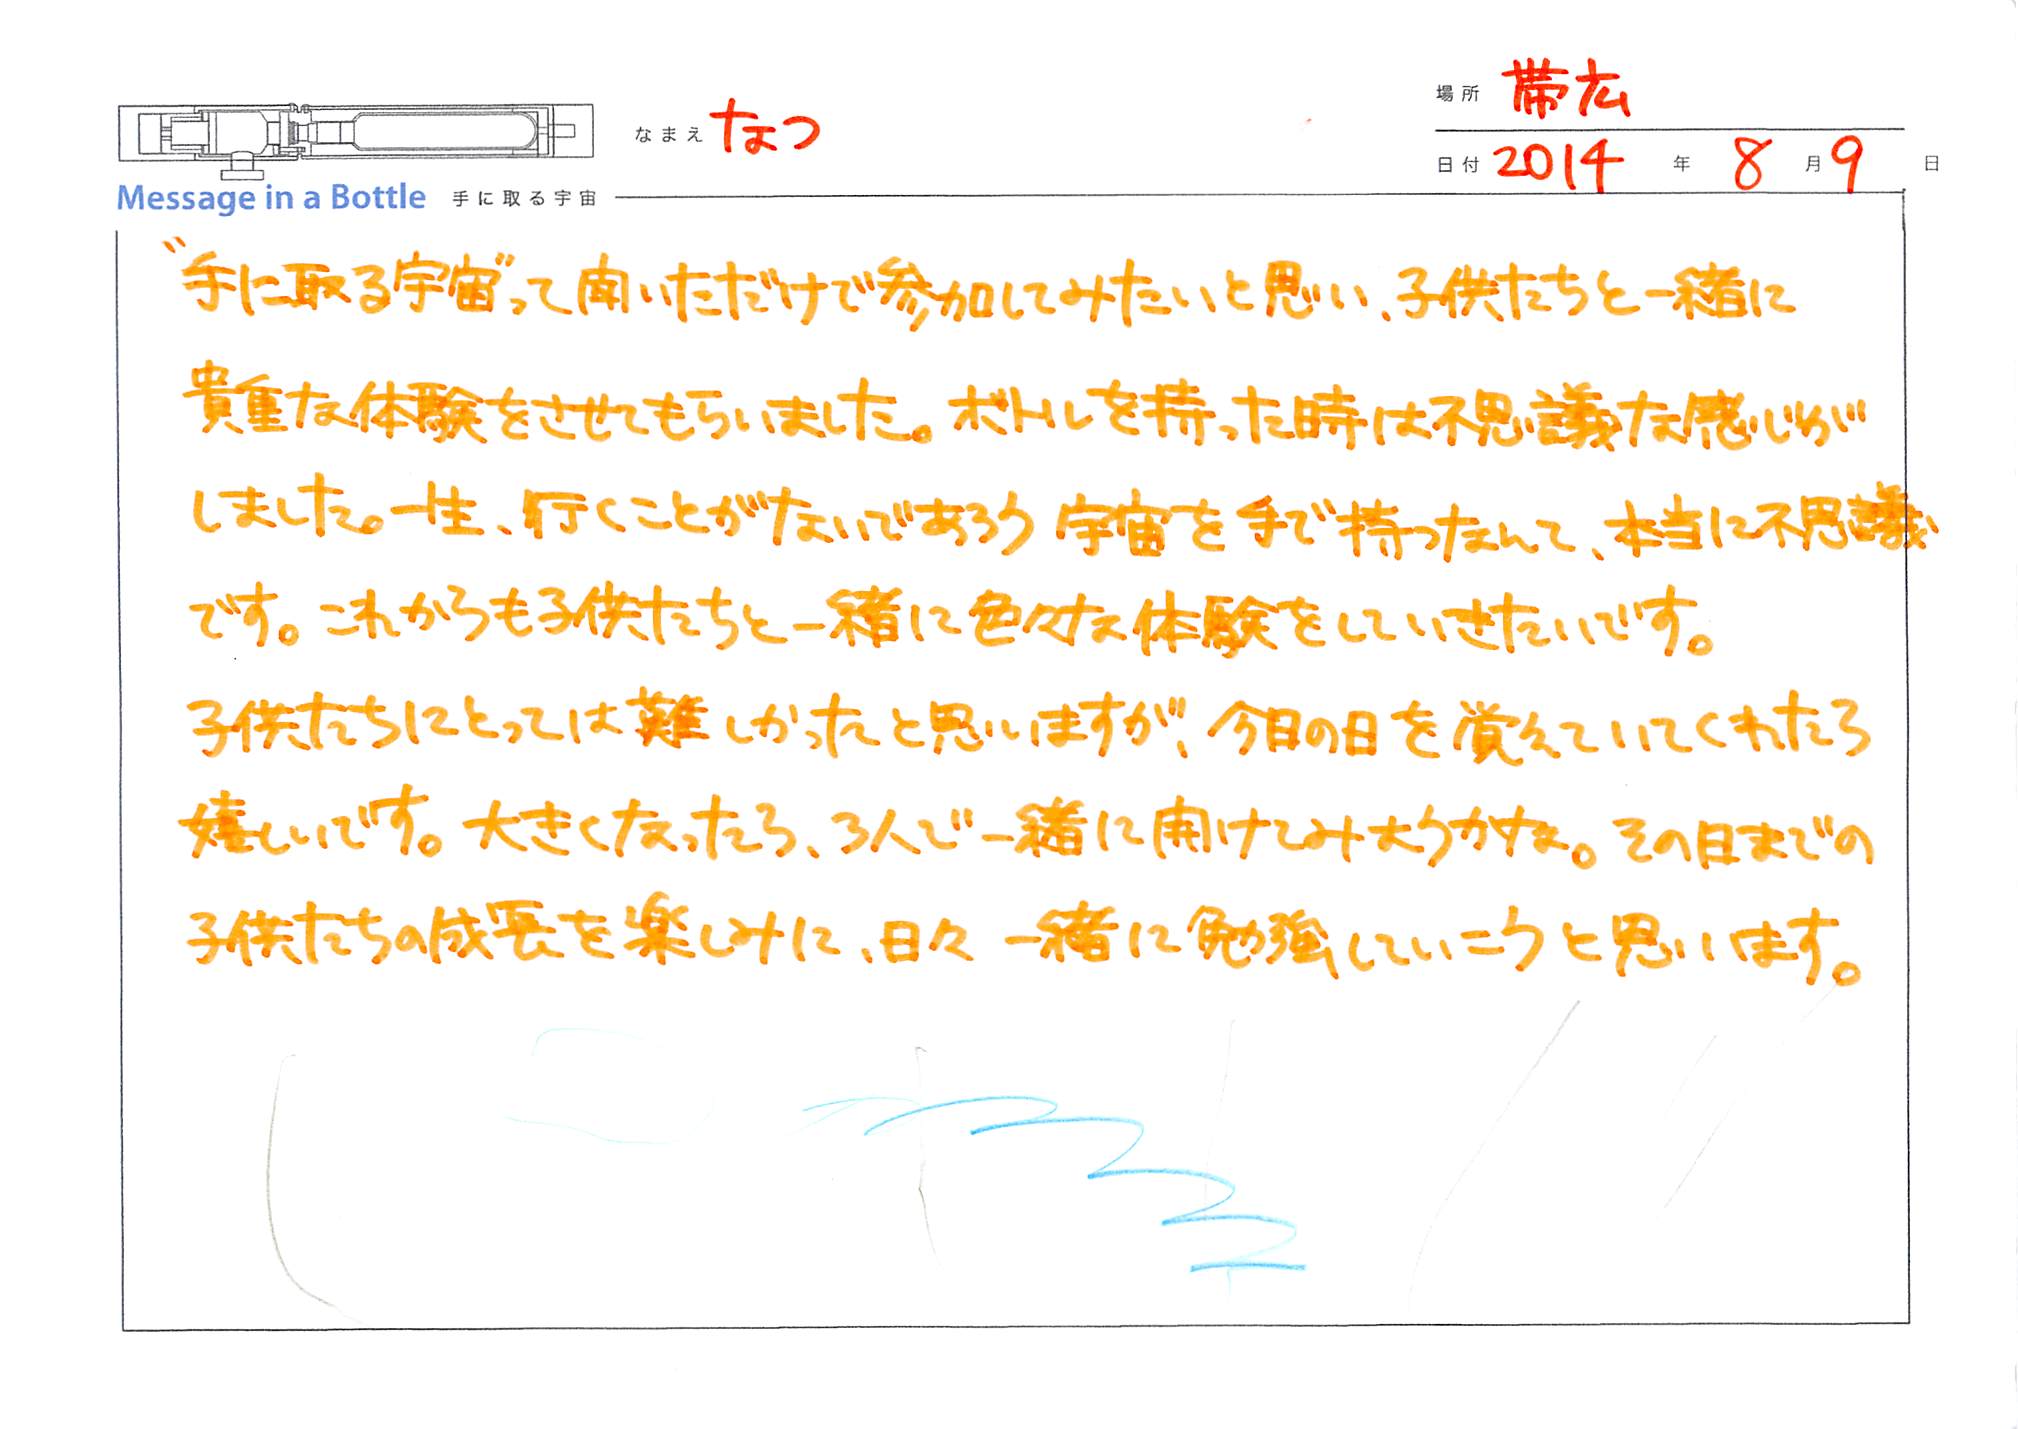 場所 帯広
なまえ なつ
日付 2014 年 8 月 9 日
Message in a Bottle 手に取る宇宙
"手に取る宇宙"って聞いただけで参加してみたいと思い、子供たちと一緒に
貴重な体験をさせてもらいました。ボトルを持った時は不思議な感じが
しました。一生、行くことがないであろう宇宙を手で持つなんて、本当に不思議
です。これからも子供たちと一緒に色々な体験をしていきたいです。
子供たちにとっては難しかったと思いますが、今日の日を覚えていてくれたら
嬉しいです。大きくなったら、3人で一緒に開けてみようかなぁ。その日までの
子供たちの成長を楽しみに、日々一緒に勉強していこうと思います。